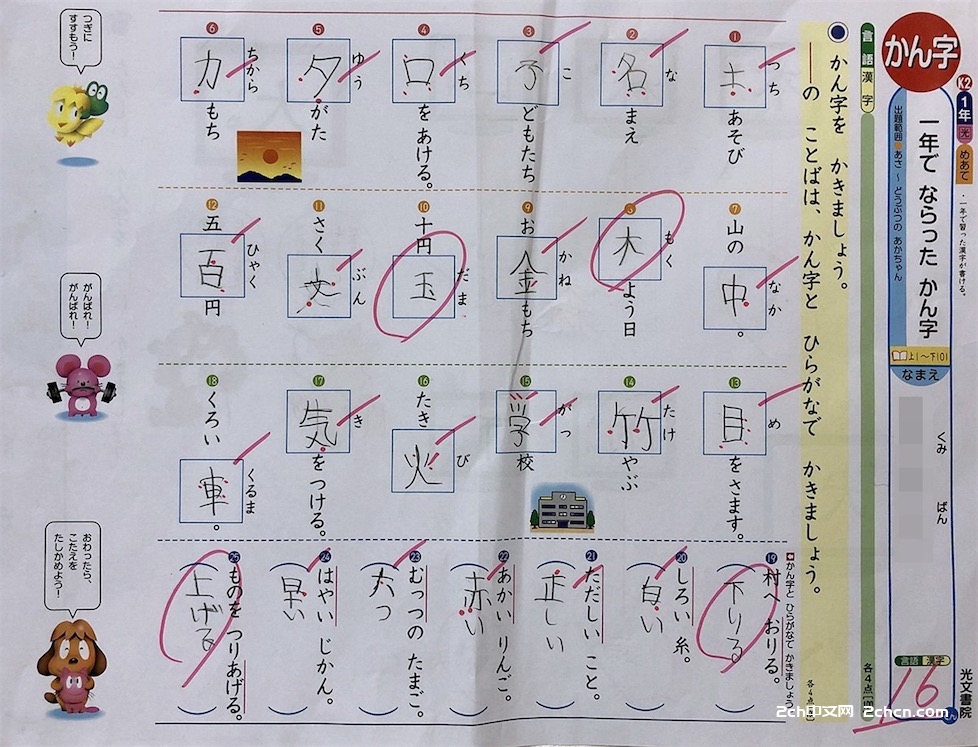 かん字
K2
1年
光
めあて
・一年で習った漢字が書ける。
一年で ならった かん字
出題範囲 あさ ~ どうぶつの あかちゃん
上1~下101
なまえ
くみ
ばん
言語 漢字
16
光文書院
言語 漢字
各4点
かん字を かきましょう。
――の ことばは、かん字と ひらがなで かきましょう。
1
土あそび
つち
2
名まえ
な
3
子どもたち
こ
4
口を あける。
くち
5
夕がた
ゆう
6
力もち
ちから
7
山の中。
なか
8
木よう日
もく
9
お金もち
かね
10
十円玉
だま
11
さく文
ぶん
12
五百円
ひゃく
13
目を さます。
め
14
竹やぶ
たけ
15
学校
がっ
16
たき火
び
17
気を つける。
き
18
くろい 車。
くるま
かん字と ひらがなで かきましょう
各4点
19
村へ おりる。
下りる
20
しろい 糸。
白い
21
ただしい こと。
正しい
22
あかい りんご。
赤い
23
むっつの たまご。
六つ
24
はやい じかん。
早い
25
ものを つりあげる。
上げる
つぎに
すすもう!
がんばれ!
がんばれ!
おわったら、
こたえを
たしかめよう!
2ch中文网 2chcn.com